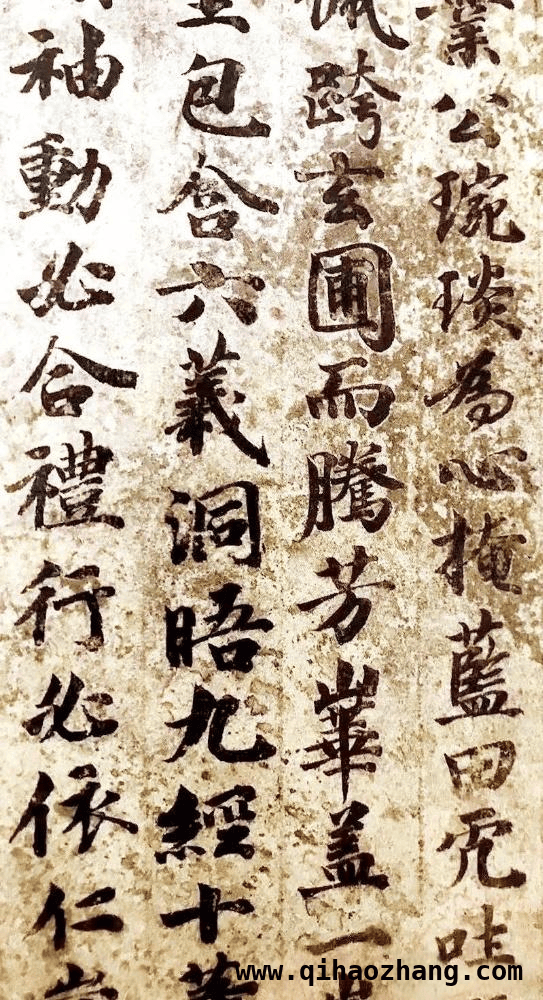 業公琬琰為心掩藍田
跨玄圃而騰芳崋蓋一
包含六義洞晤九經十
袖動必合禮行必依仁
www.qihaozhang.com